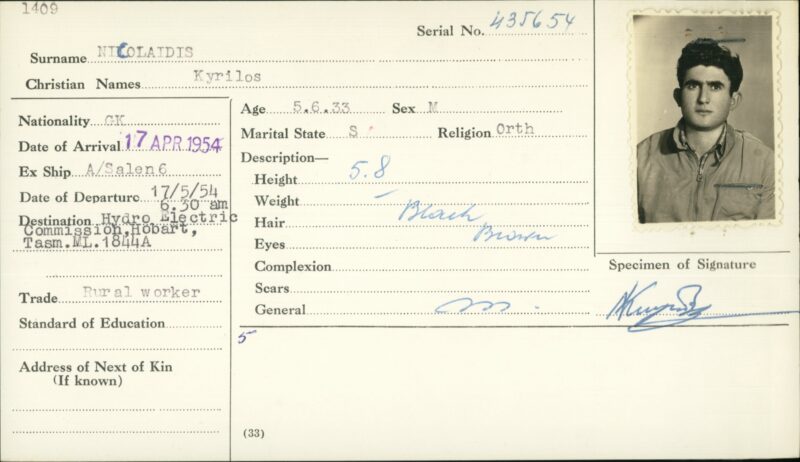 1409
Serial No. 435654
Surname NIKOLAIDIS
Christian Names Kyrilos
Nationality GK
Date of Arrival 17 APR 1954
Ex Ship A/Salen6
Date of Departure 17/5/54
6.30 am
Destination Hydro Electric
Commission,Hobart,
Tasm.ML.1844A
Trade Rural worker
Standard of Education
Address of Next of Kin
(If known)
Age 5.6.33 Sex M
Marital State S Religion Orth
Description—
Height 5.8
Weight –
Hair Black
Eyes Brown
Complexion
Scars
General
5
(33)
Specimen of Signature